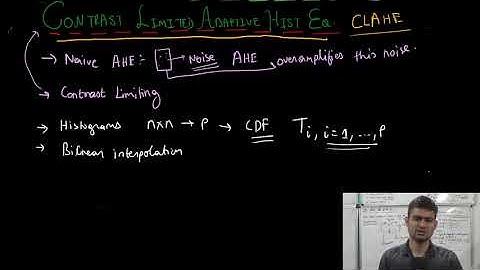 CONTRAST LIMITED ADAPTIVE HIST EQ. CLAHE
→ Naive AHE:- → Noise AHE overamplifies this noise.
→ Contrast Limiting
→ Histograms n×n → P → CDF Ti, i=1, ..., P
→ Bilinear interpolation